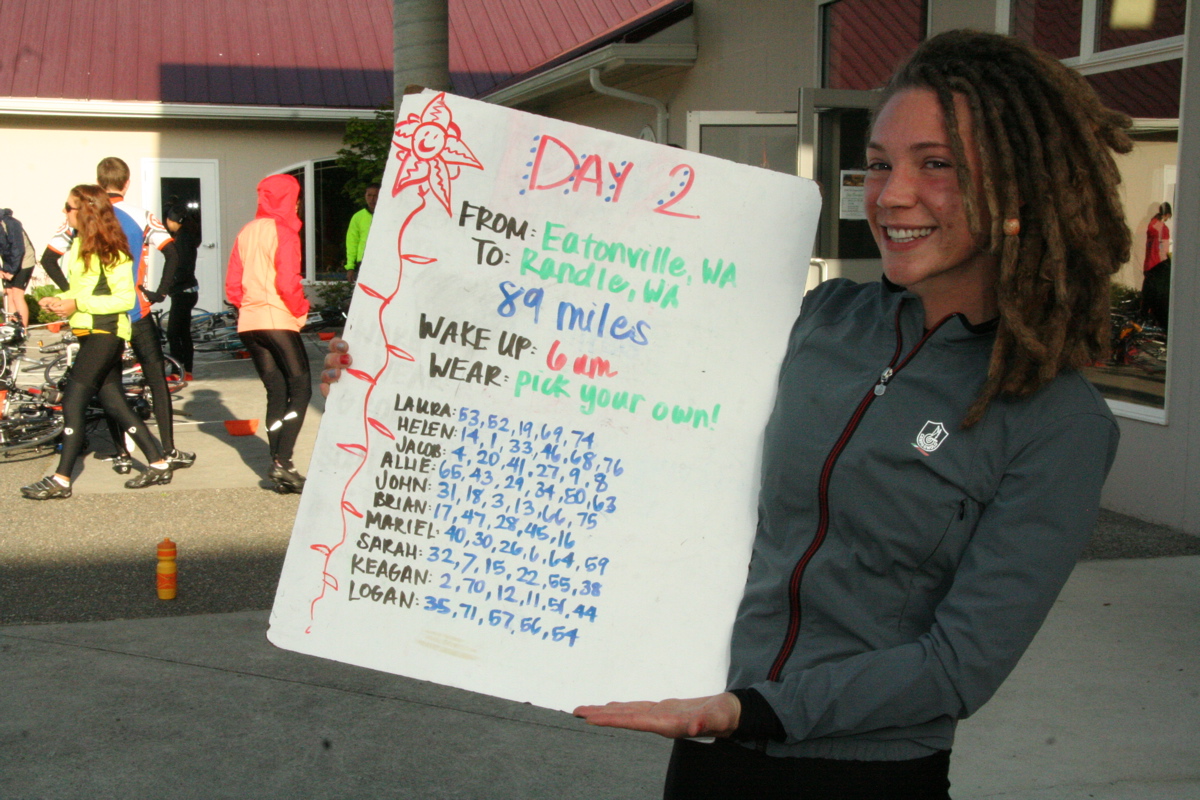 DAY 2
FROM: Eatonville, WA
TO: Randle, WA
89 miles
WAKE UP: 6 am
WEAR: pick your own!
LAURA: 53, 52, 19, 69, 74
HELEN: 14, 1, 33, 46, 68, 76
JACOB: 4, 20, 41, 27, 9, 8
ALLIE: 65, 43, 29, 34, 50, 63
JOHN: 31, 18, 3, 13, 66, 75
BRIAN: 17, 47, 28, 45, 16
MARIEL: 40, 30, 26, 6, 64, 59
SARAH: 32, 7, 15, 22, 55, 38
KEAGAN: 2, 70, 12, 11, 51, 44
LOGAN: 35, 71, 57, 56, 54